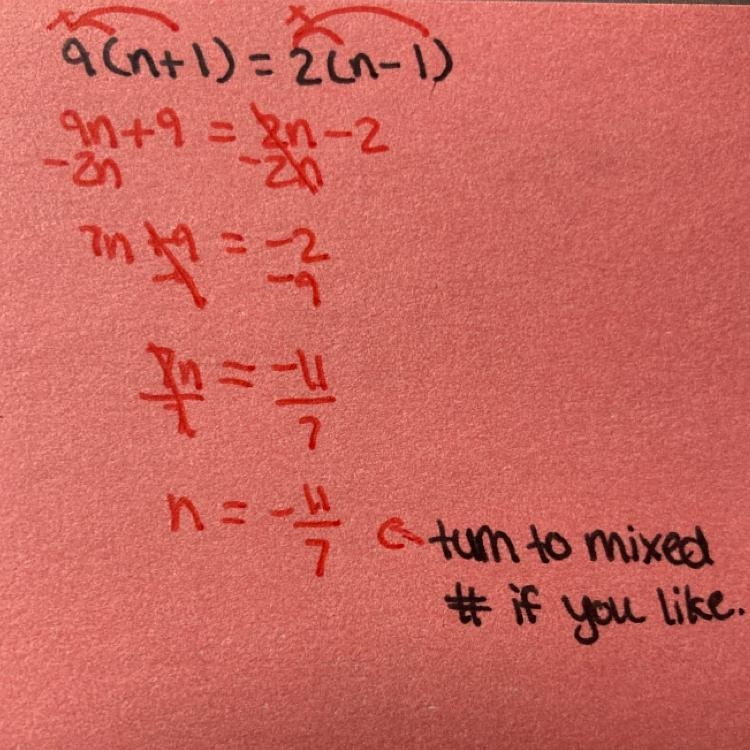 9(n+1) = 2(n-1)
9n+9 = 2n-2
-2n -2n
7n +9 = -2
-9 -9
7n = -11
7 7
n = -11
7
turn to mixed
# if you like.